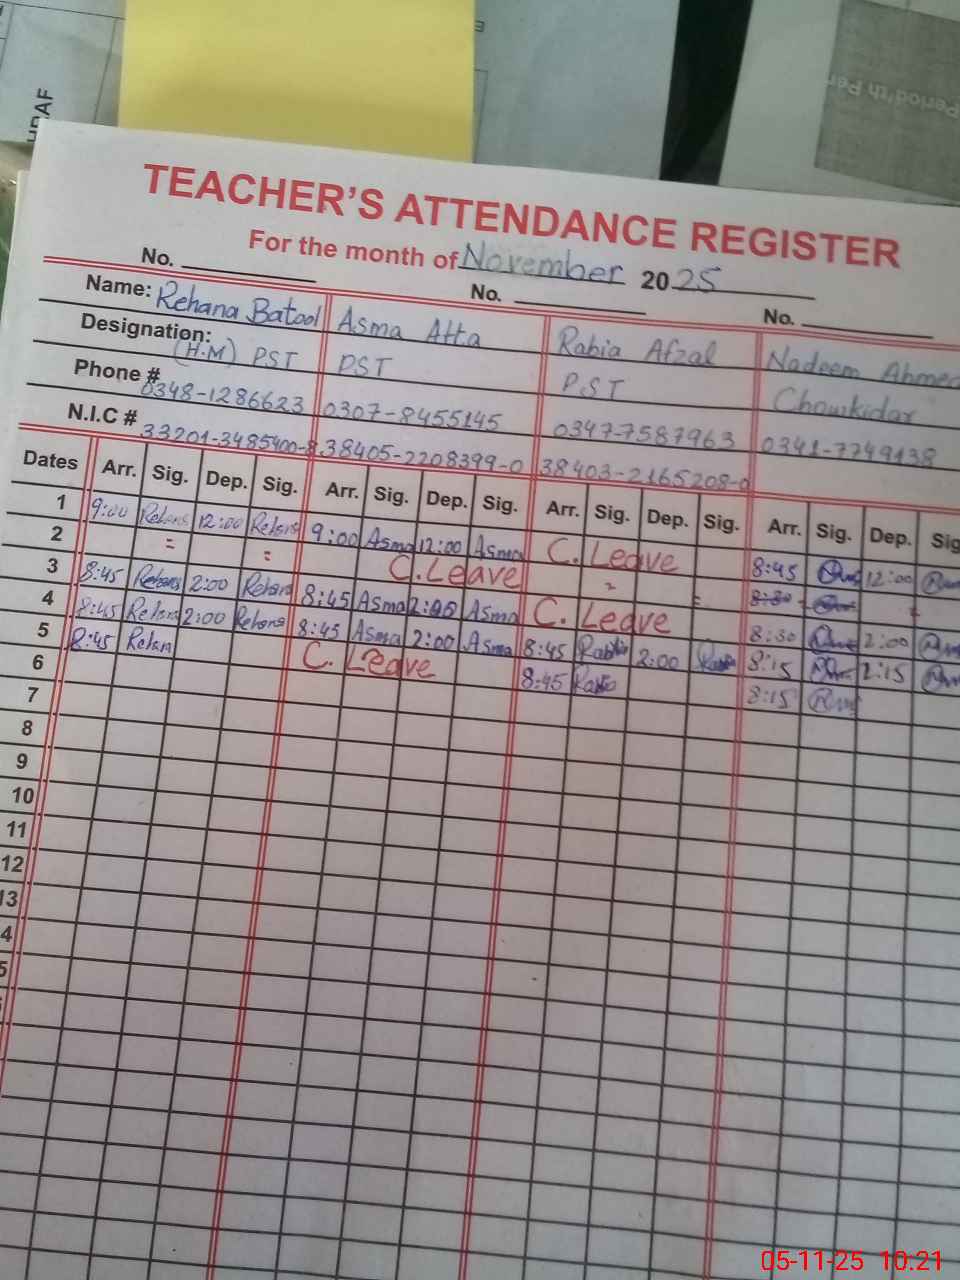 UDAF
Period'th Per
TEACHER'S ATTENDANCE REGISTER
For the month of November 2025
No. No. No.
Name: Rehana Batool Asma Atta Rabia Afzal Nadeem Ahmed
Designation: (H.M) PST PST PST Chowkidar
Phone # 0348-1286623 0307-8455145 0347-7587963 0341-7749138
N.I.C # 33201-3485400-8 38405-2208399-0 38403-2165208-0
Dates Arr. Sig. Dep. Sig. Arr. Sig. Dep. Sig. Arr. Sig. Dep. Sig. Arr. Sig. Dep. Sig
1 9:00 Rehana 12:00 Rehana 9:00 Asma 12:00 Asma C. Leave 8:45 12:00
2 = = C. Leave = = 8:30
3 8:45 Rehana 2:00 Rehana 8:45 Asma 2:00 Asma C. Leave 8:30 2:00
4 8:45 Rehana 2:00 Rehana 8:45 Asma 2:00 Asma 8:45 Rabia 2:00 Rabia 8:15 2:15
5 8:45 Rehana C. Leave 8:45 Rabia 8:15
6
7
8
9
10
11
12
13
4
5
05-11-25 10:21